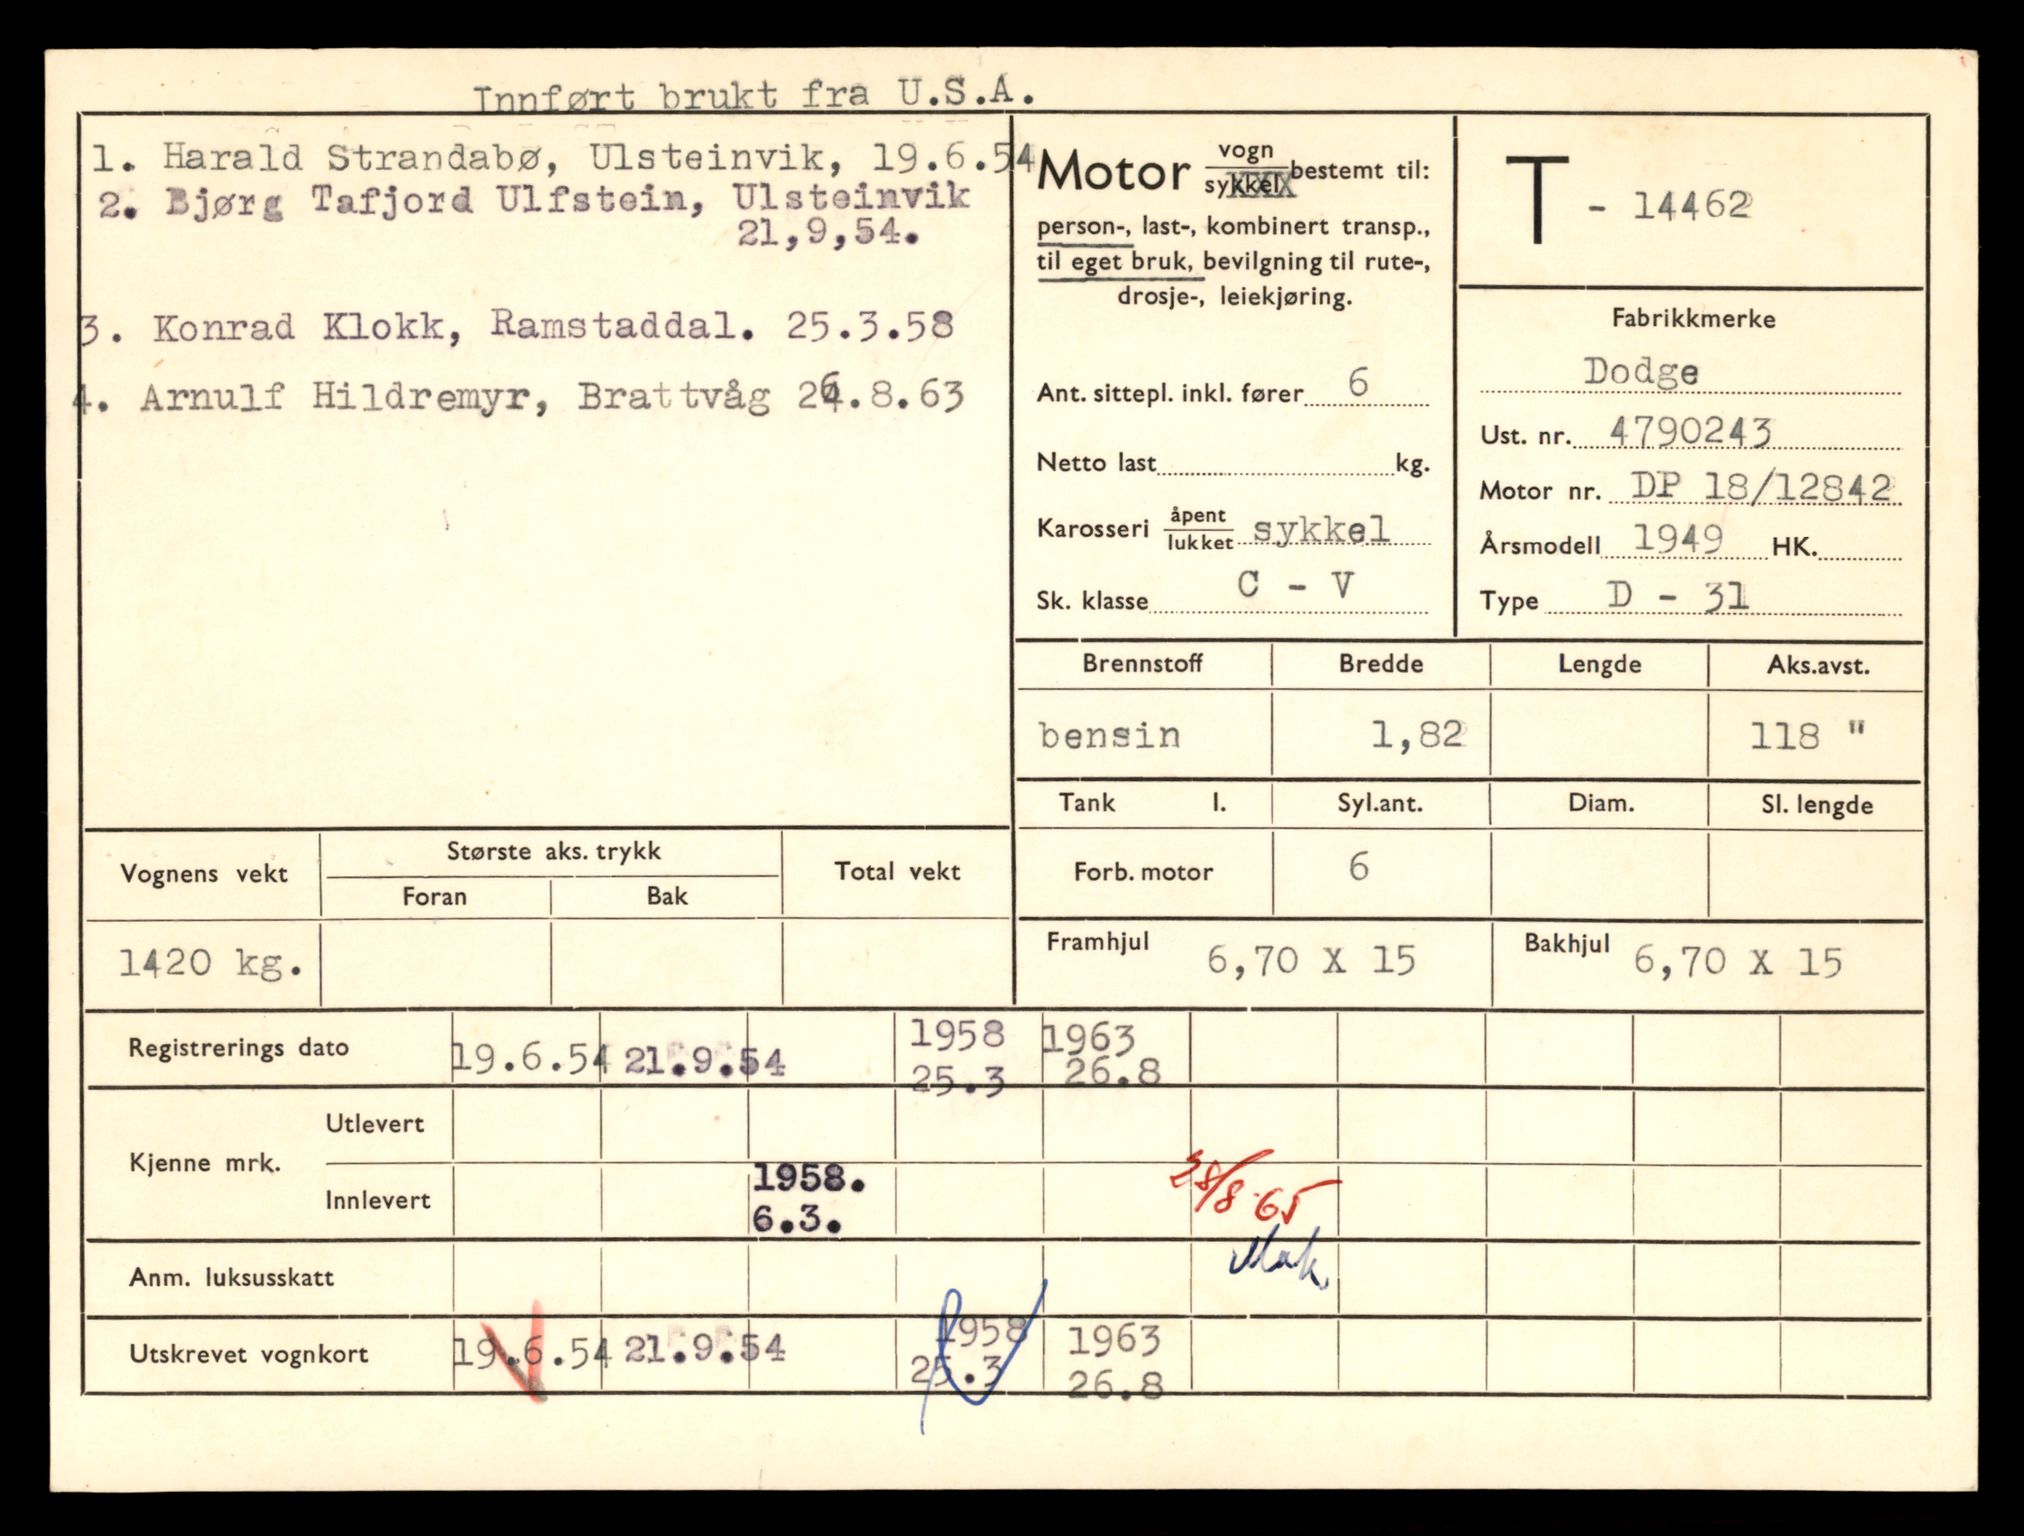 Innført brukt fra U.S.A.
1. Harald Strandabø, Ulsteinvik, 19.6.54
2. Bjørg Tafjord Ulfstein, Ulsteinvik
21,9,54.
3. Konrad Klokk, Ramstaddal. 25.3.58
4. Arnulf Hildremyr, Brattvåg 26.8.63
Motor vogn / sykkel bestemt til:
person-, last-, kombinert transp.,
til eget bruk, bevilgning til rute-,
drosje-, leiekjøring.
Ant. sittepl. inkl. fører 6
Netto last kg.
Karosseri åpent / lukket sykkel
Sk. klasse C - V
T - 14462
Fabrikkmerke
Dodge
Ust. nr. 4790243
Motor nr. DP 18/12842
Årsmodell 1949 HK.
Type D - 31
Brennstoff Bredde Lengde Aks.avst.
bensin 1,82 118 "
Tank l. Syl.ant. Diam. Sl. lengde
Forb. motor 6
Framhjul 6,70 X 15 Bakhjul 6,70 X 15
Vognens vekt Største aks. trykk Total vekt
Foran Bak
1420 kg.
Registrerings dato 19.6.54 21.9.54 1958 25.3 1963 26.8
Kjenne mrk. Utlevert
Innlevert 1958. 6.3. 28/8-65
Anm. luksusskatt
Utskrevet vognkort 19.6.54 21.9.54 1958 25.3 1963 26.8